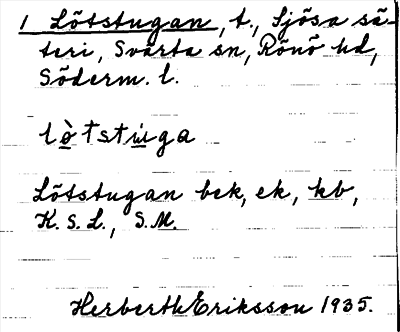 1 Lötstugan, t., Sjösa sä-
teri, Svärta sn, Rönö hd,
Söderm. l.
lò̱tstu̱ga
Lötstugan bek, ek, kb,
K. S. L., S.M.
Herberth Eriksson 1935.